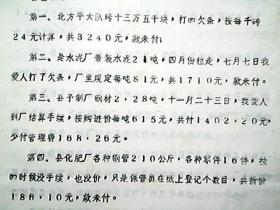 第一、北方平大队砖十三万五千块，打的欠条，按每千砖
24元计算，共3240元，款未付；
第二、是水泥厂帮装水泥21吨，四月份拉走，七月七日我
爱人打了欠条，厂里规定每吨81元，共1710元，款未付。
第三、县予制厂钢材2.28吨，十一月二十三日，我爱人
到厂结算手续，按购进价每吨615元，共付1402.20元，
少付管理费168.26元。
第四、县化肥厂各种钢管210公斤，各种零件16件，拉
的时候没手续，也没价，只是保管员在纸上登记个数目，共折价
186.10元，款未付。